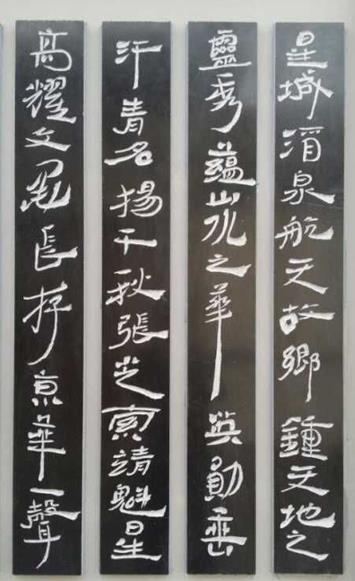 星城酒泉航天故鄉鍾天地之
靈秀蘊山水之華英勛垂
汗青名揚千秋張芝索靖魁星
高耀文墨長存京華一聲